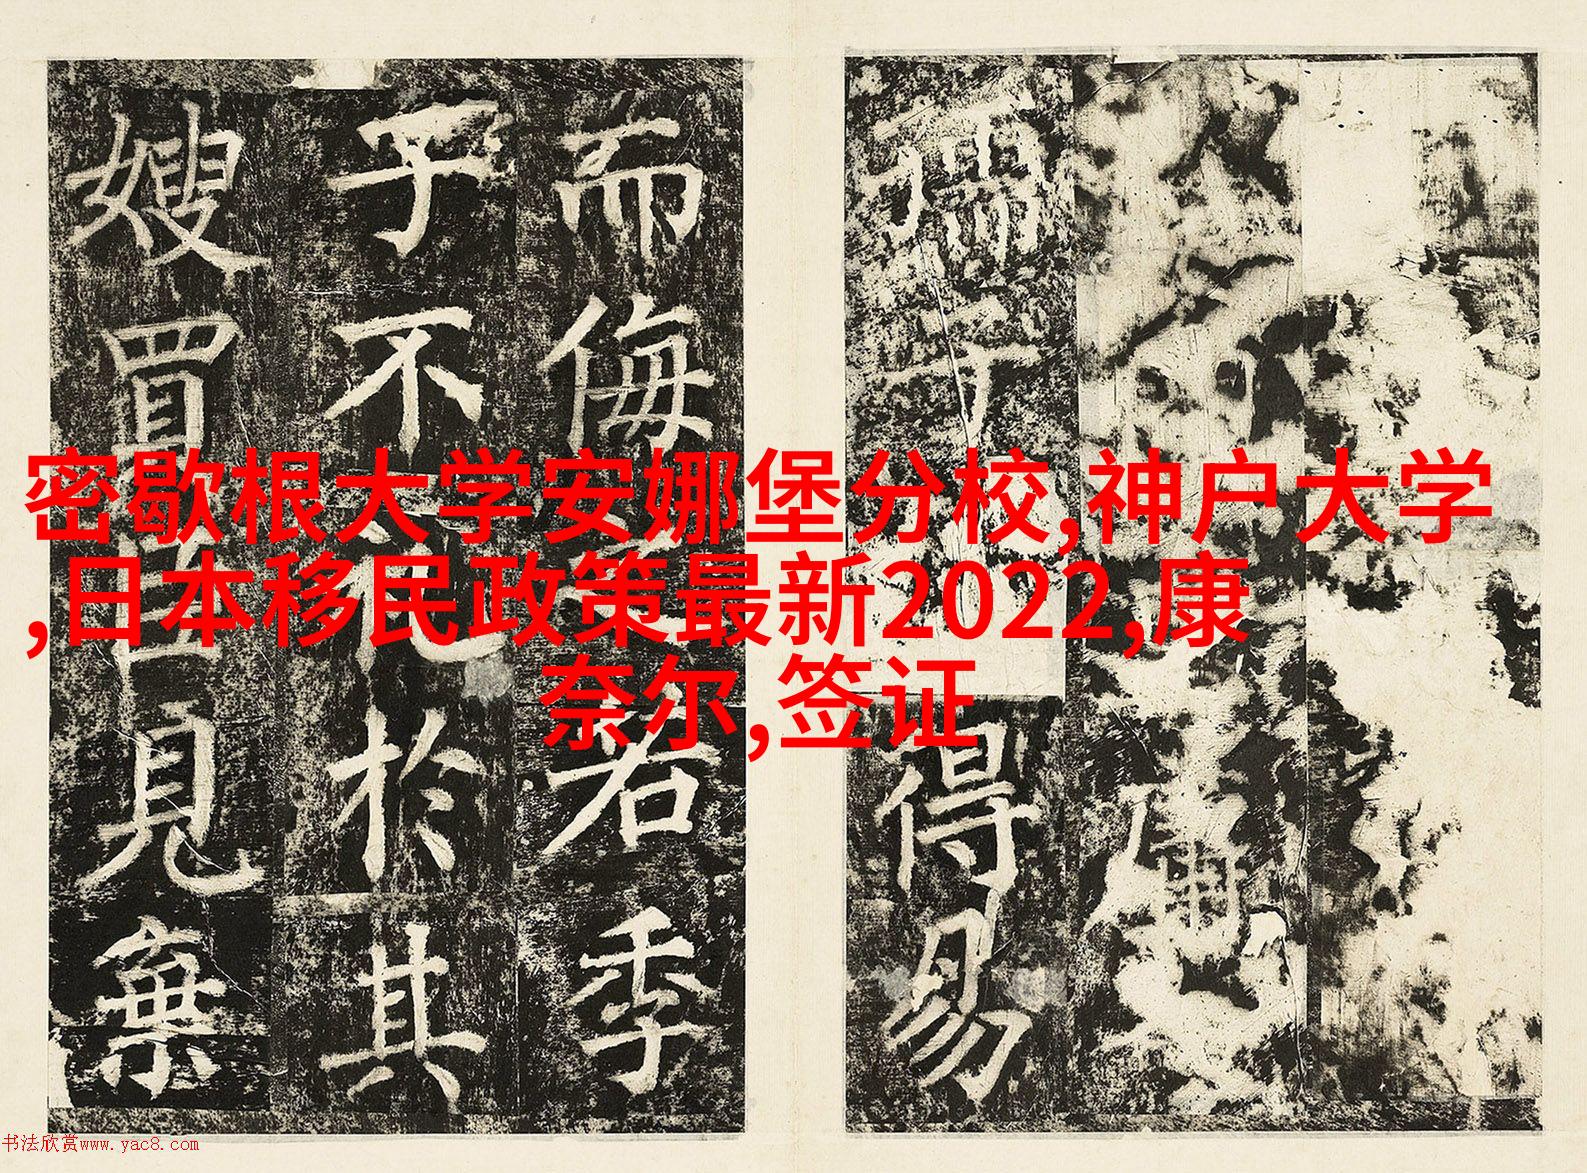 密歇根大学安娜堡分校,神户大学
,日本移民政策最新2022,康
奈尔,签证
得易
而侮若季
子不於其
嫂買見棄
书法欣赏www.yac8.com